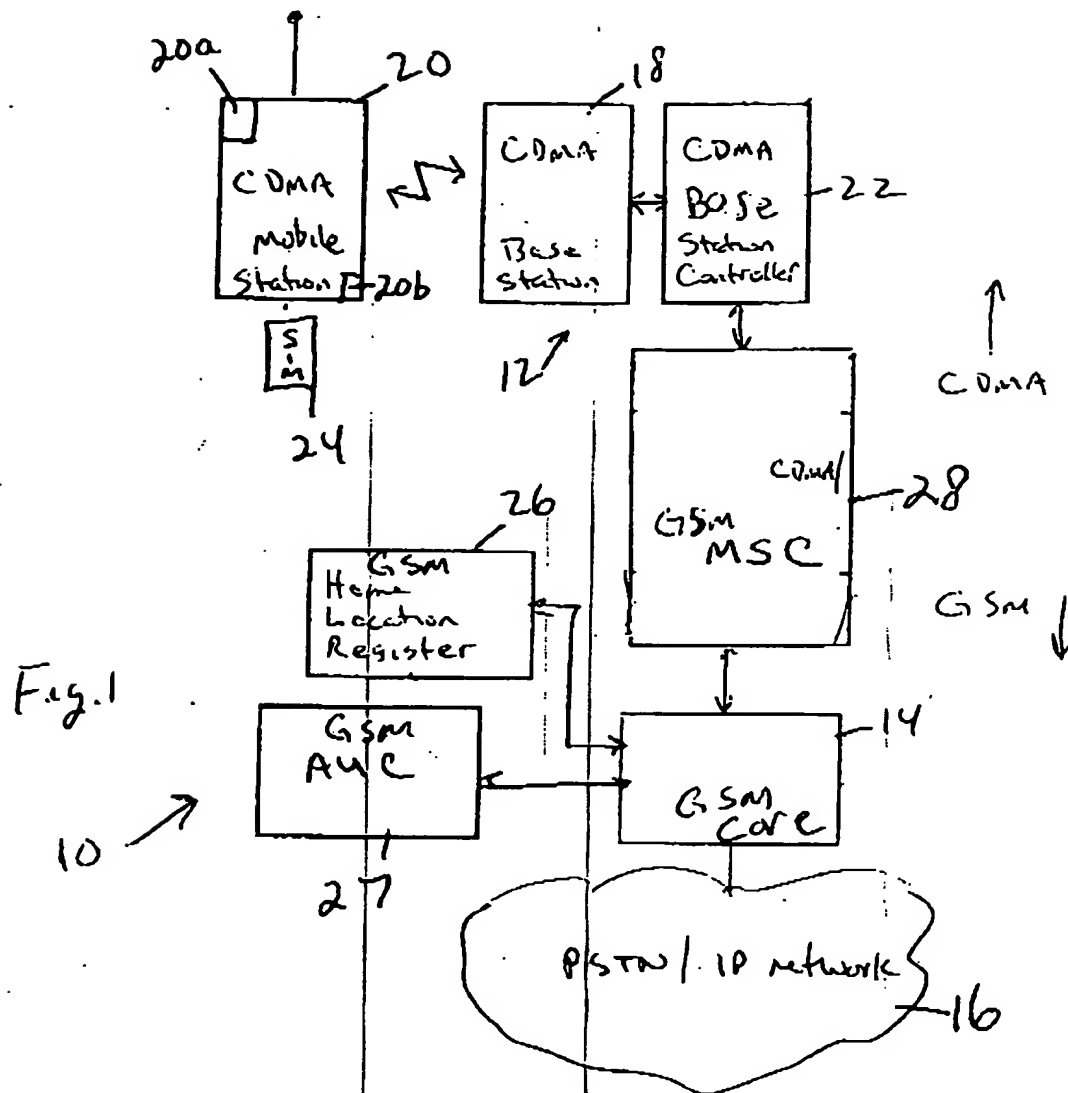 20a
20
18
CDMA
Mobile
Station
20b
CDMA
Base
Station
CDMA
Base
Station
Controller
22
SIM
24
12
CDMA
CDMA/
GSM
MSC
28
GSM
26
GSM
Home
Location
Register
Fig.1
GSM
AUC
27
10
14
GSM
Core
PSTN/IP network
16